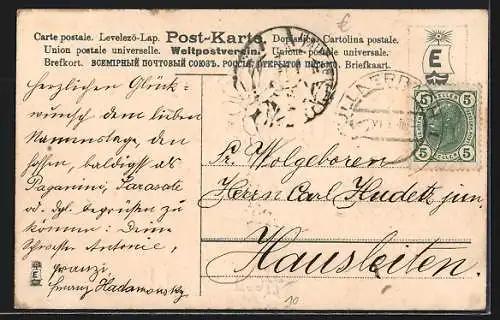 Carte postale. Levelező-Lap. Post-Karte. Dopisnice. Cartolina postale.
Union postale universelle. Weltpostverein. Unione postale universale.
Brefkort. ВСЕМІРНЫЙ ПОЧТОВЫЙ СОЮЗЪ. РОССІЯ. ОТКРЫТОЕ ПИСЬМО. Briefkaart.
E
5 5
5 5
Herzlichen Glück-
wunsch dem lieben
Namenstage, den
hoffen, baldigst als
Paganini, Sarasate
od. dgl. begrüßen zu
können: Deine
Schwester Antonie,
Franzi,
Franz Hadamovsky
Sr. Wolgeboren
Herrn Carl Hudetz jun.
Hausleiten.
E
10